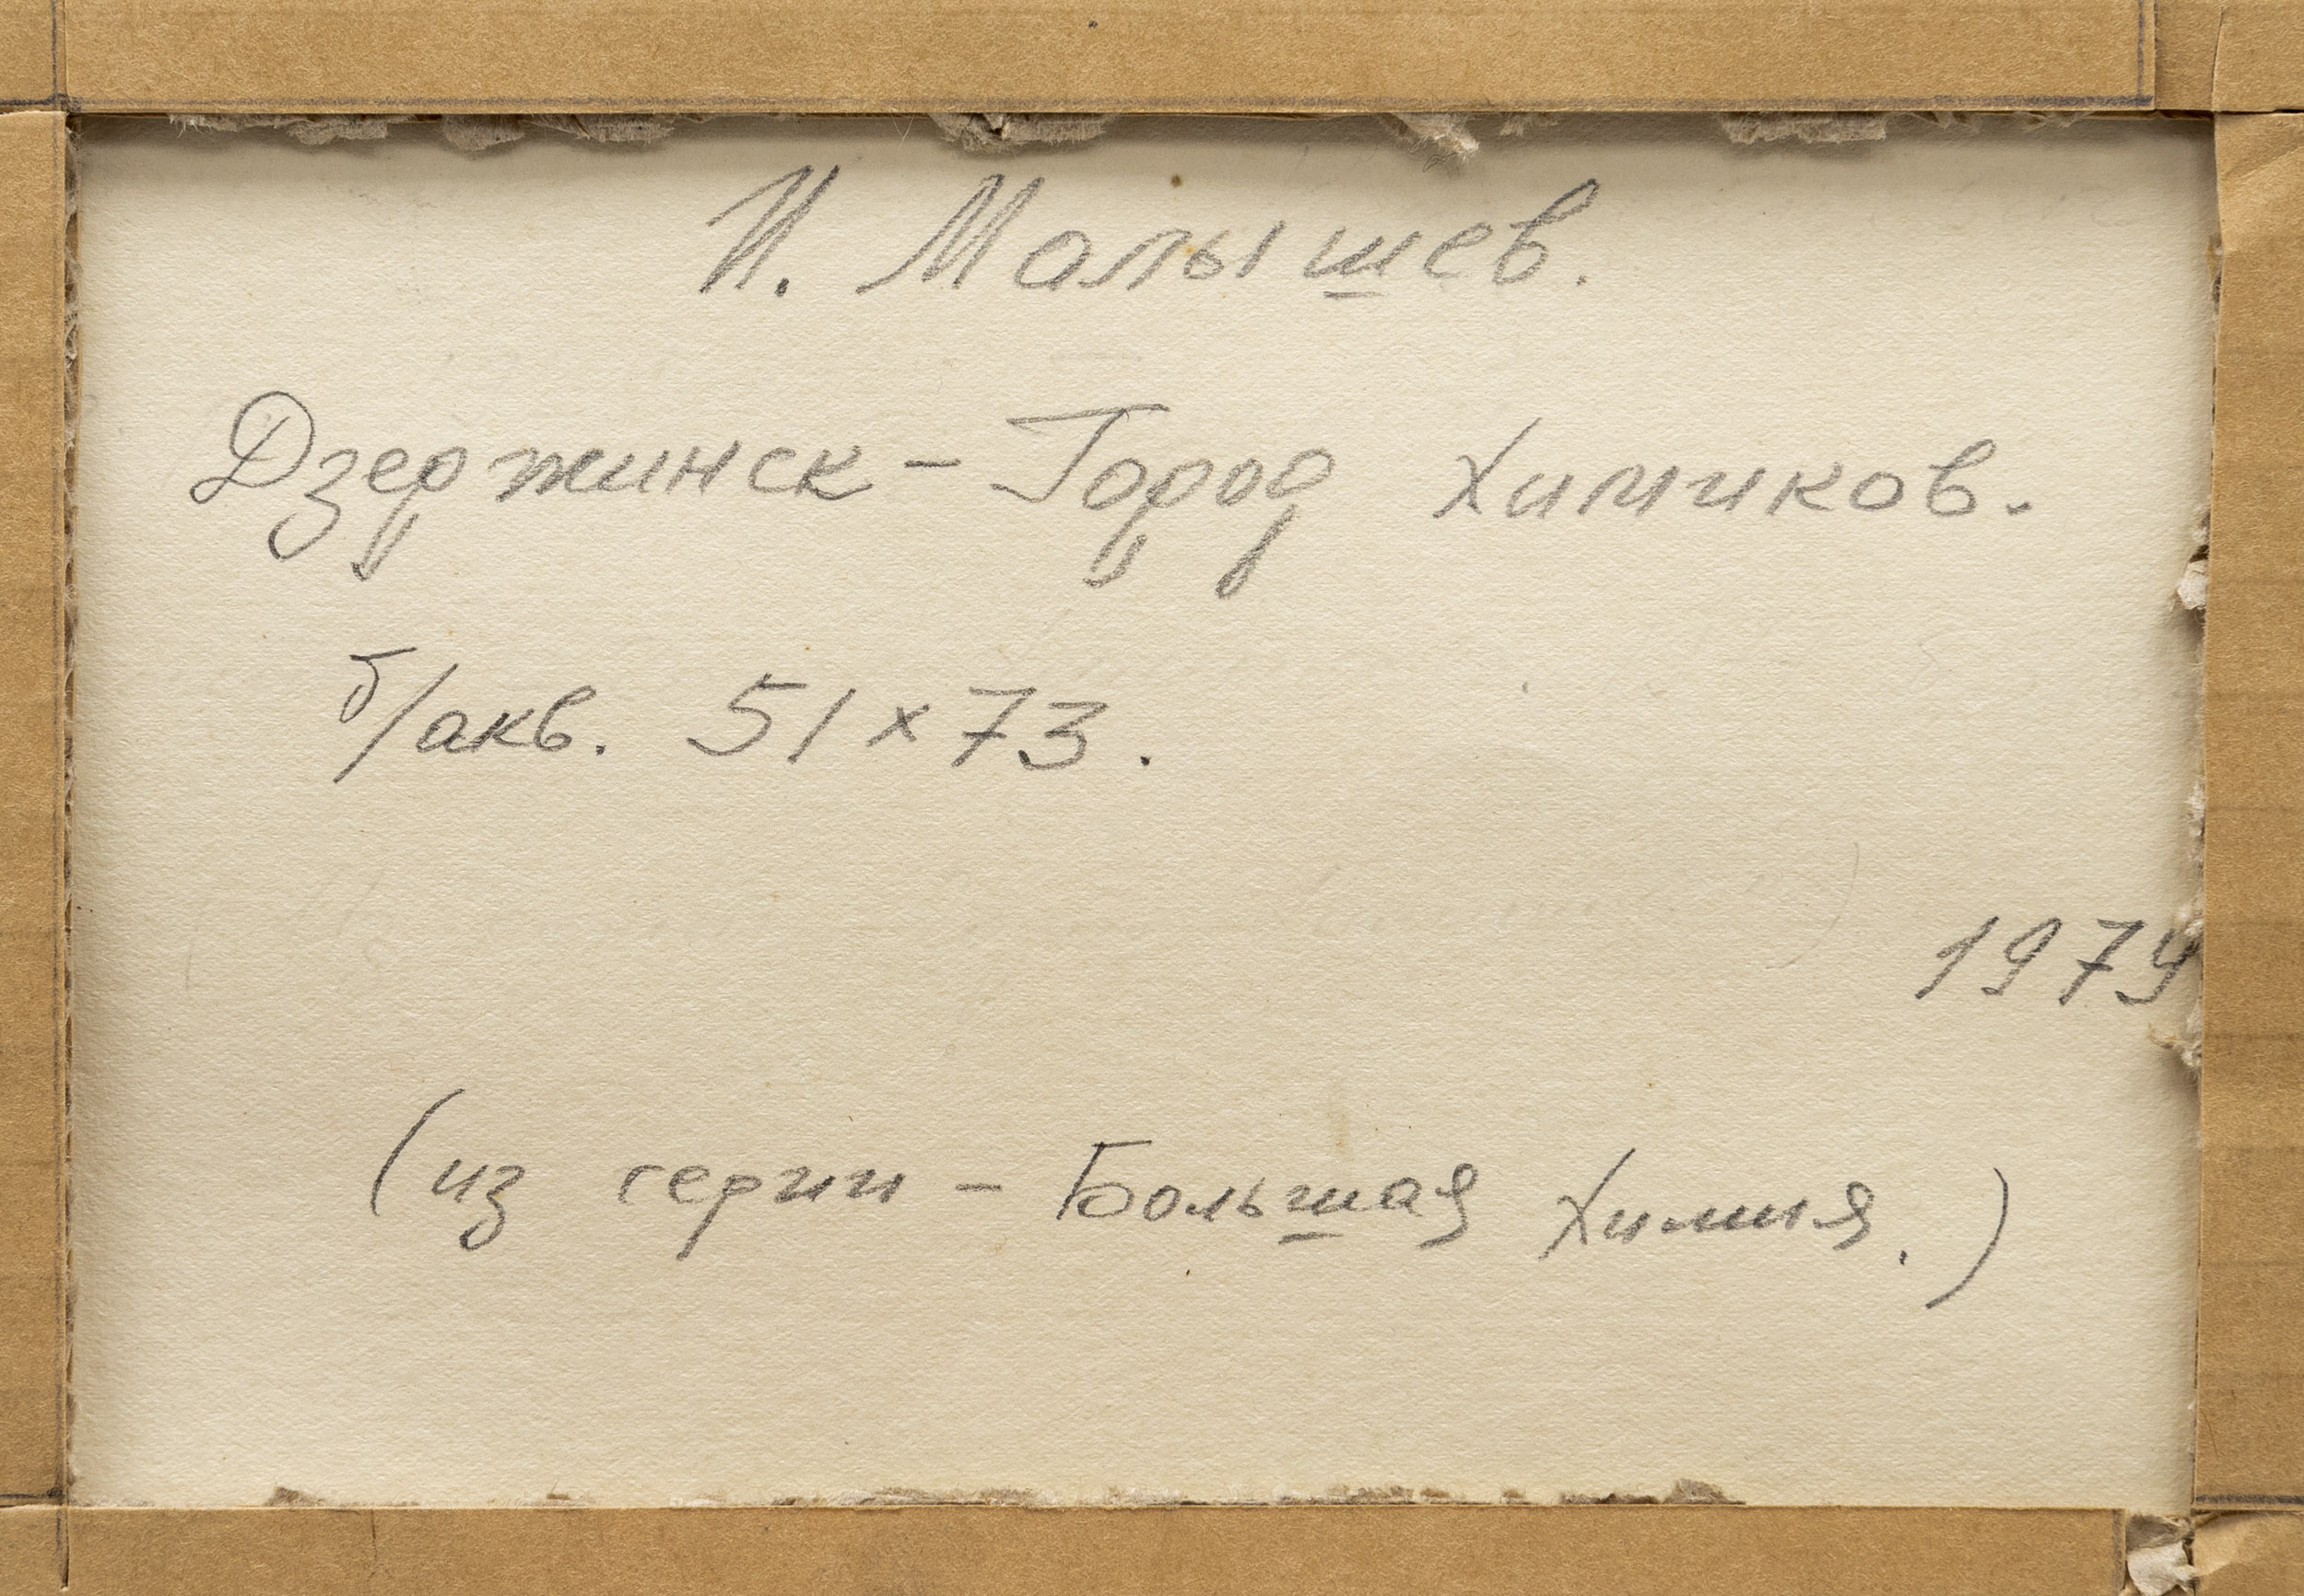 И. Малышев.
Дзержинск – Город Химиков.
б/акв. 51 х 73.
1974
(из серии – Большая Химия.)